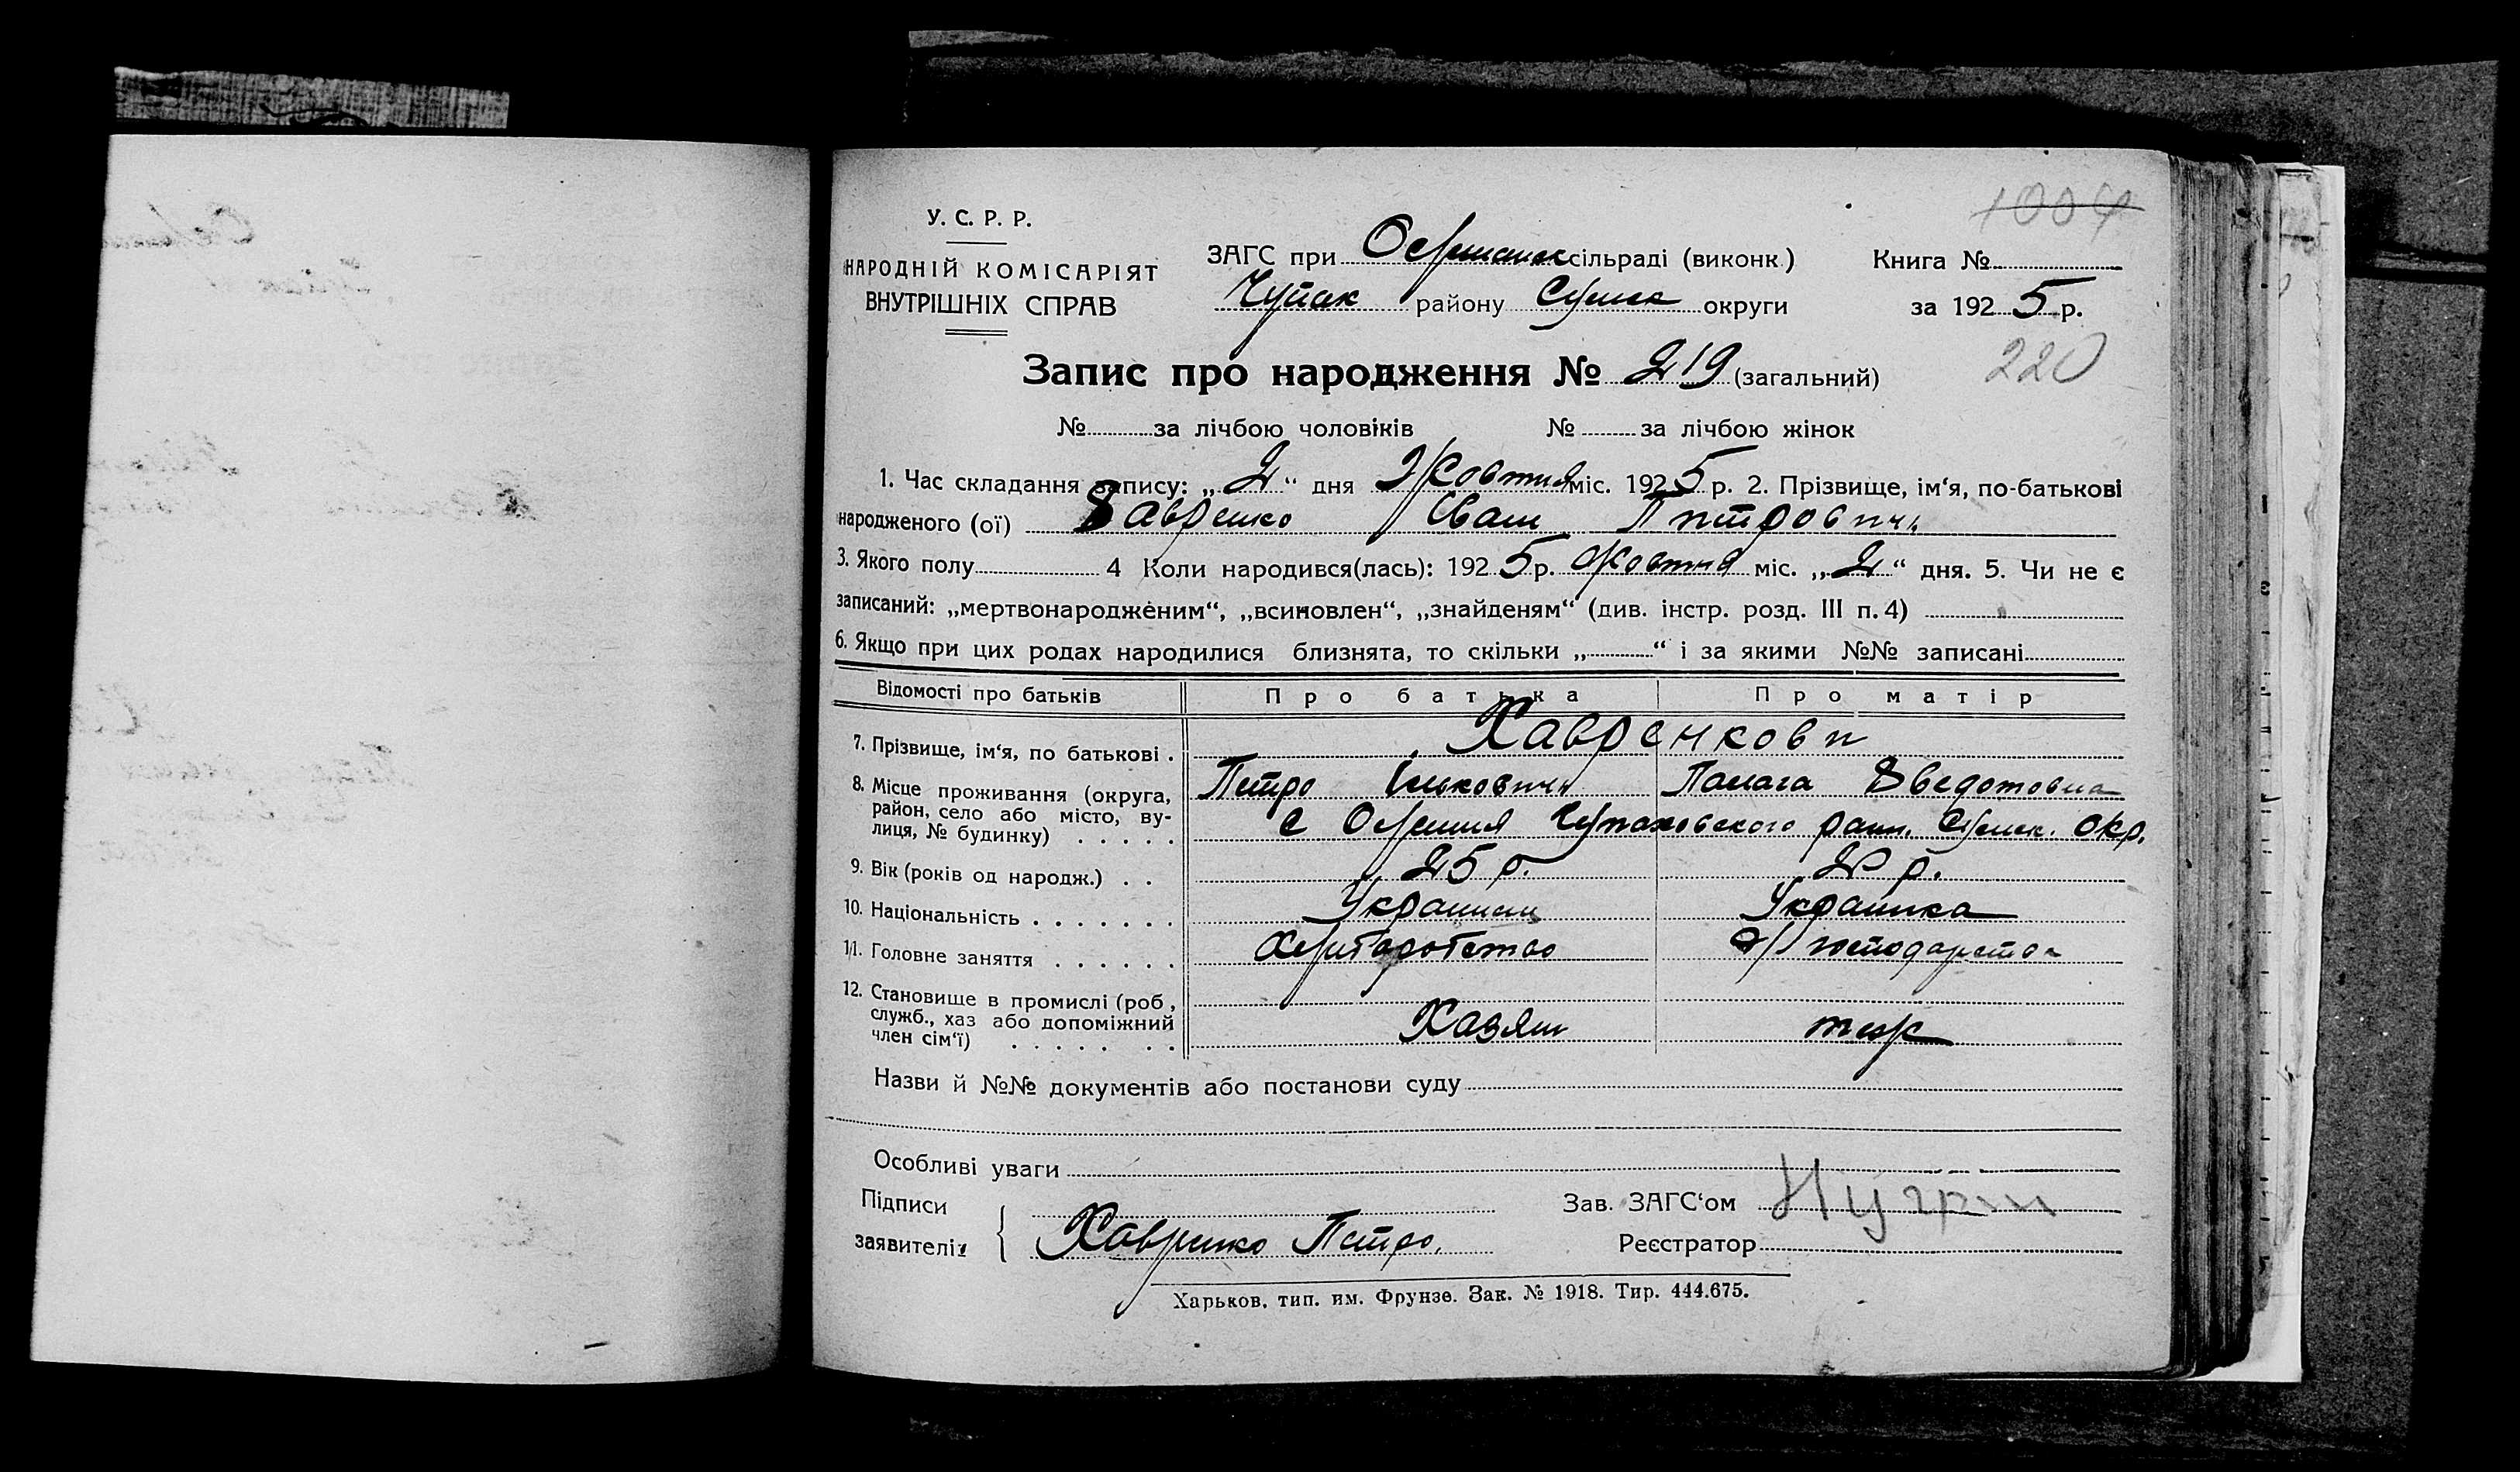 1004
У. С. Р. Р.
НАРОДНІЙ КОМІСАРІЯТ
ВНУТРІШНІХ СПРАВ
ЗАГС при сільраді (виконк.)
Чупак району Сумск округи
Книга №
за 1925 р.
220
Запис про народження № 219 (загальний)
№ за лічбою чоловіків № за лічбою жінок
1. Час складання запису: „2“ дня Жовтня міс. 1925 р. 2. Прізвище, ім‘я, по-батькові
народженого (ої) Хавренко Іван Петрович
3. Якого полу 4 Коли народився(лась): 1925 р. Жовтня міс. „2“ дня. 5. Чи не є
записаний: „мертвонародженим“, „всиновлен“, „знайденям“ (див. інстр. розд. III п. 4)
6. Якщо при цих родах народилися близнята, то скільки „ “ і за якими №№ записані
Відомості про батьків Про батька Про матір
7. Прізвище, ім‘я, по батькові . Хавренкови
Петро Ількович
8. Місце проживання (округа, район, село або місто, вулиця, № будинку) с Чупаховского раин. Сумск. окр.
9. Вік (років од народж.) 25 р. р.
10. Національність Украинец Украинка
11. Головне заняття Хлиборобство
12. Становище в промислі (роб, служб., хаз або допоміжний член сім‘ї) Хазяин теж
Назви й №№ документів або постанови суду
Особливі уваги
Підписи
заявителів { Хавренко Петро.
Зав. ЗАГС‘ом
Реєстратор
Харьков, тип. им. Фрунзе. Зак. № 1918. Тир. 444.675.